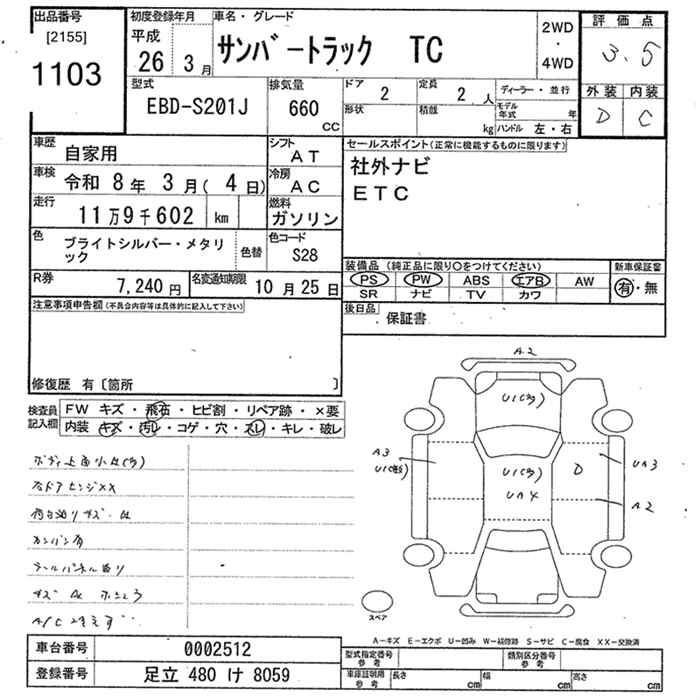 出品番号 初度登録年月 車名・グレード 2WD・4WD 評価点
[2155] 平成
1103 26 3月 サンバートラック TC 3.5
型式 排気量 ドア 定員 ディーラー・並行 外装 内装
EBD-S201J 660 CC 2 2人 D C
形状 積載 kg モデル年式 年 ハンドル 左・右
車歴 自家用 シフト AT セールスポイント(正常に機能するものに限ります)
車検 令和 8年 3月( 4日) 冷房 AC 社外ナビ
走行 11万9千602 km 燃料 ガソリン ETC
色 ブライトシルバー・メタリック 色替 色コード S28
装備品(純正品に限り○をつけてください) 新車保証書
R券 7,240円 名変通知期限 10月25日 PS PW ABS エアB AW 有・無
SR ナビ TV カワ
注意事項申告欄(不具合内容等は具体的に記入して下さい) 後日品 保証書
修復歴 有〔箇所 〕
検査員記入欄 FW キズ・飛石・ヒビ割・リペア跡・×要
内装 キズ・汚レ・コゲ・穴・スレ・キレ・破レ
A2
U1(多)
A3
U1(多)
UA4
D
UA3
A2
スペア
A-キズ E-エクボ U-凹み W-補修跡 S-サビ C-腐食 XX-交換済
車台番号 0002512 型式指定番号 参考 類別区分番号 参考
登録番号 足立 480 け 8059 車庫証明用 参考 長さ cm 幅 cm 高さ cm